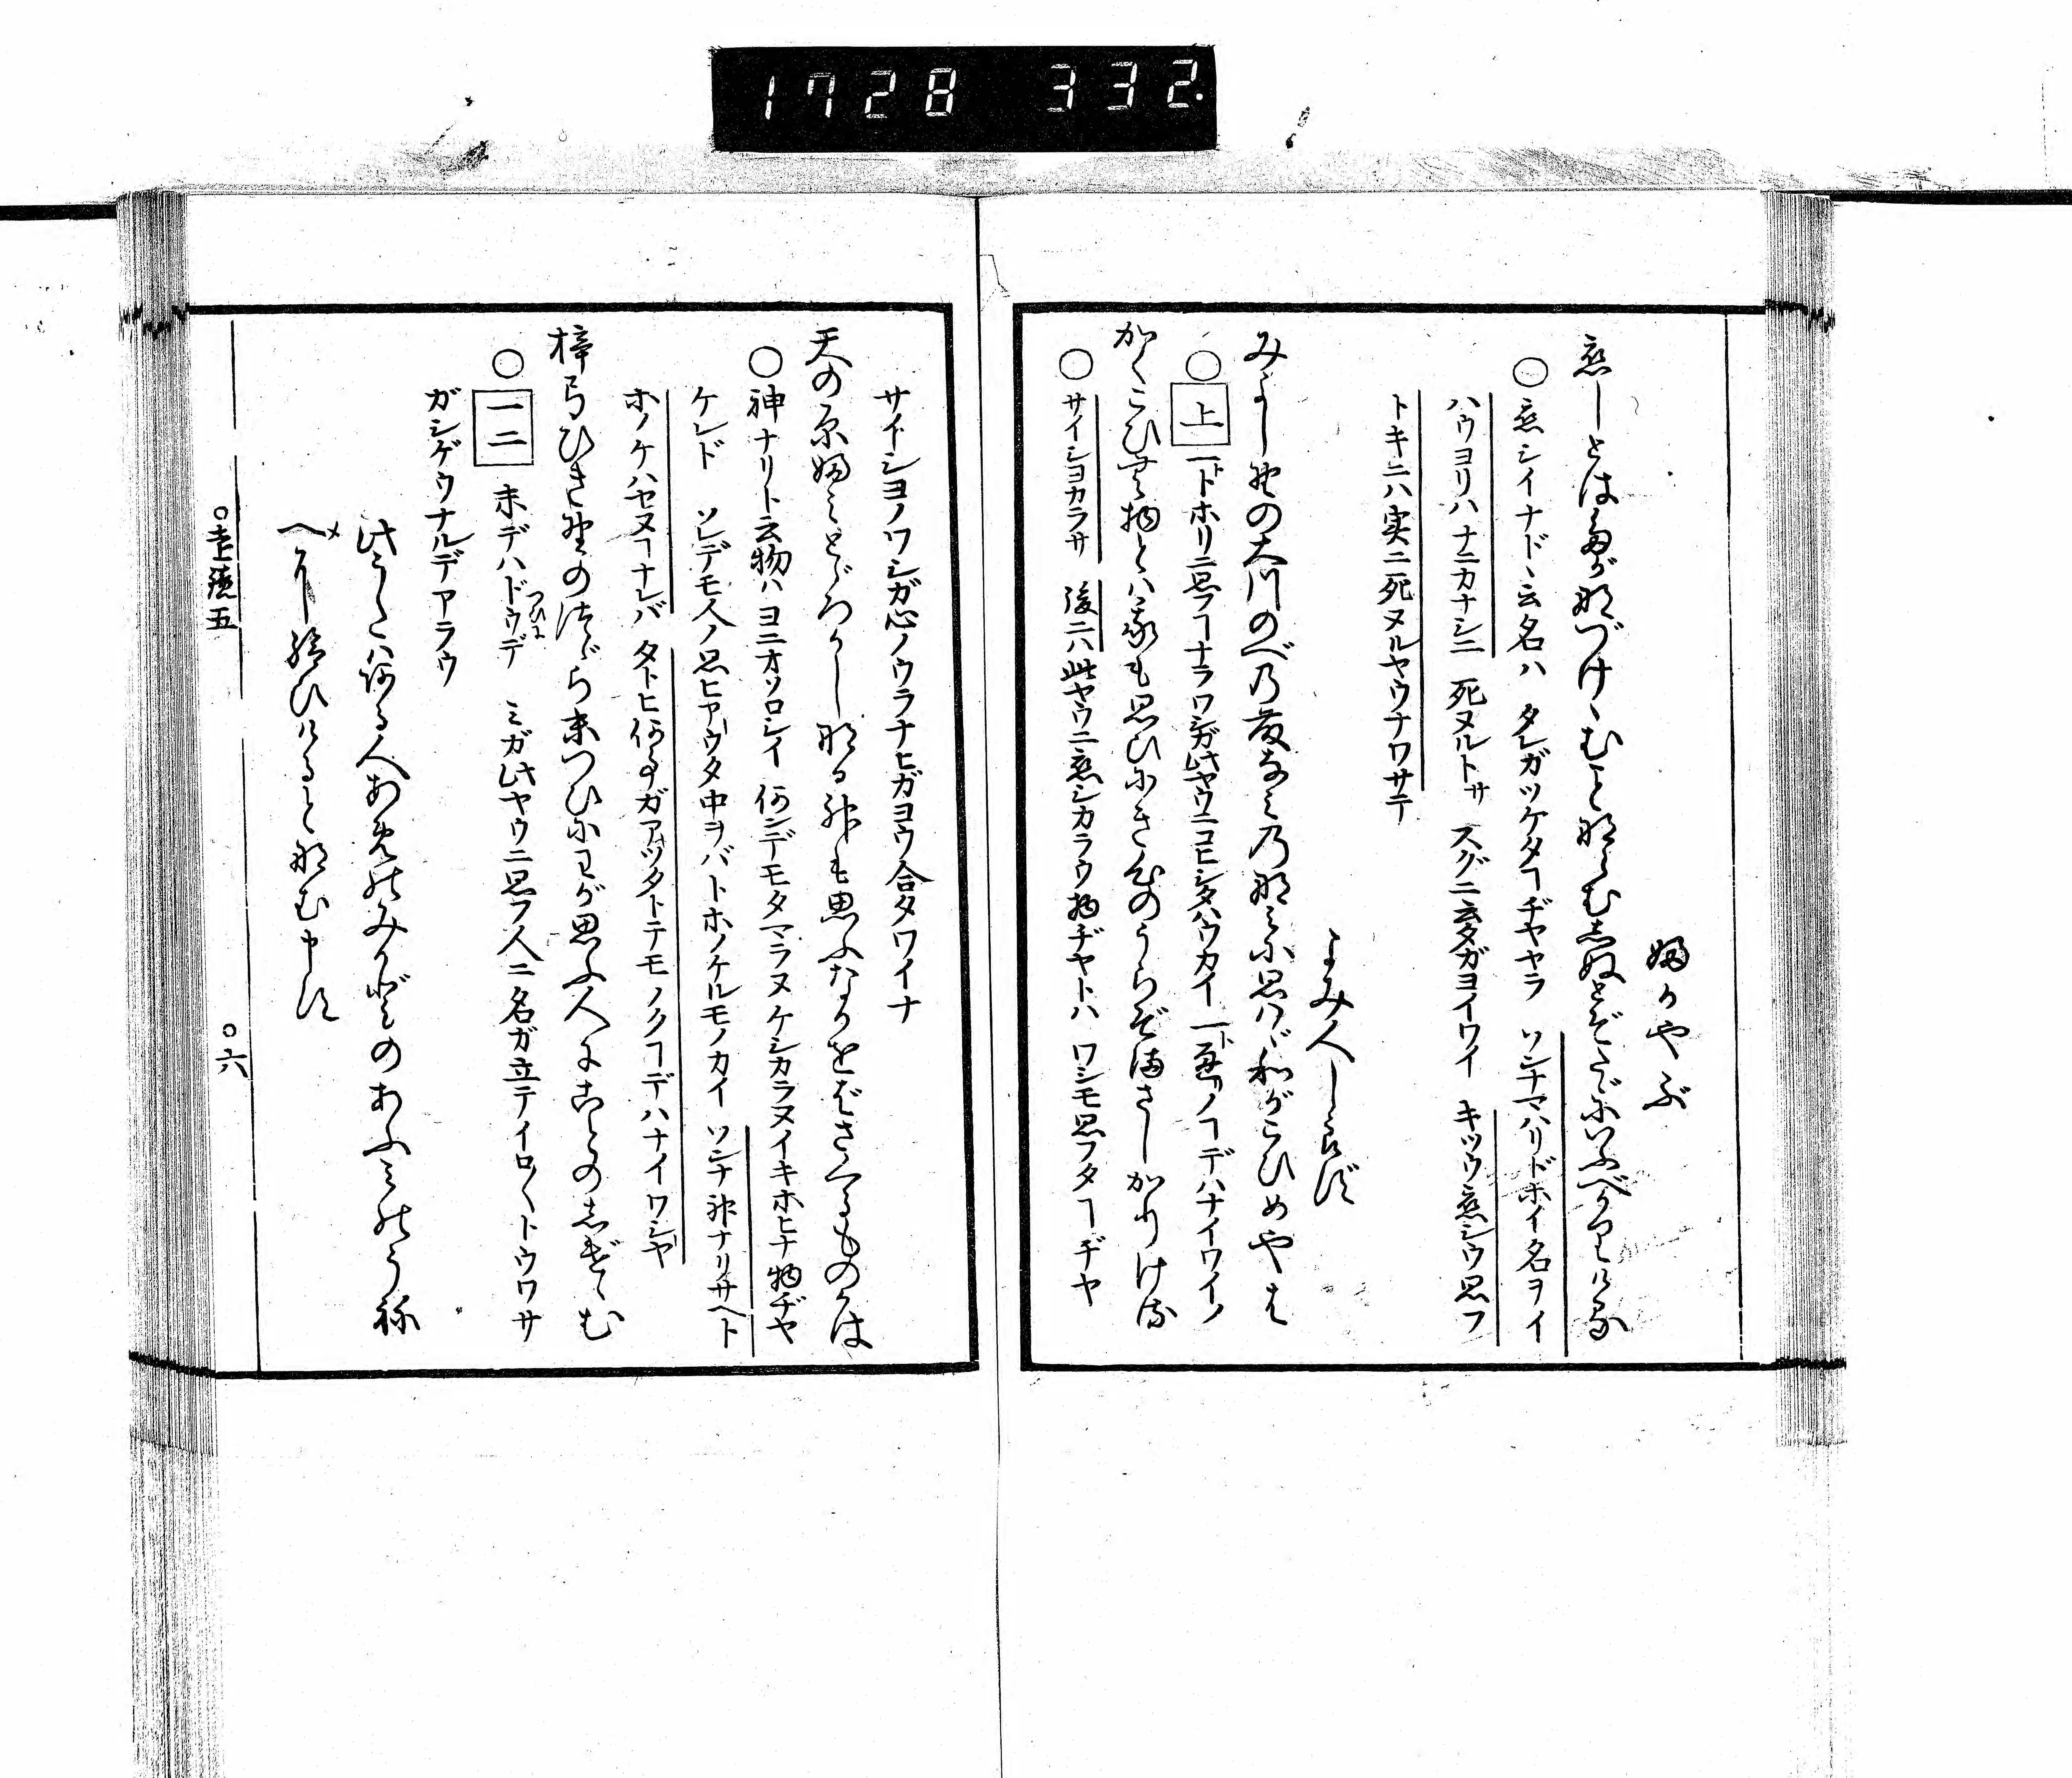 1728 332
ふかやぶ
恋しとはたが名づけゝむこと那らむしぬとぞたゞにいふべかりける
○恋シイナドヽ云名ハ タレガツケタヿヂヤヤラ ソンナマハリドホイ名ヲイ
ハウヨリハナニカナシニ 死ヌルトサ スグニ云タガヨイワイ キツウ恋シウ思フ
トキニハ実ニ死ヌルヤウナワサテ
よみ人しらず
みよし野の大川のべの藤なみの那みに思はゞ和がこひめやは
○上一トホリニ思フヿナラワシガ此ヤウニコヒシタハウカイ 一ト通リノヿデハナイワイノ
かくこひむ物とは我も思ひにき心のうらぞまさしかりける
○サイシヨカラサ 後ニハ此ヤウニ恋シカラウ物ヂヤトハ ワシモ思フタヿヂヤ
サイシヨノワシガ心ノウラナヒガヨウ合タワイナ
天の原ふみとゞろかし那る神も思ふなかをばさくるものかは
○神ナリト云物ハヨニオソロシイ 何ンデモタマラヌケシカラヌイキホヒナ物ヂヤ
ケレド ソレデモ人ノ思ヒアウタ中ヲバトホノケルモノカイ ソンナ神ナリサヘト
ホノケハセヌヿナレバ タトヒ何事ガアツタトテモノクヿデハナイワシヤ
梓弓ひき野のつゞら末つひにわが思ふ人にことの志げゝむ
○一二末デハドウデつひに ミガ此ヤウニ思フ人ニ名ガ立テイロ〳〵トウワサ
ガシゲウナルデアラウ
此うたハ何る人あめのみかどのあふみのうね
べに給ひけると那む申す
○遠鏡五
○六